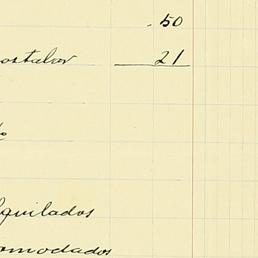 .50
ostales 21
quilados
omodados